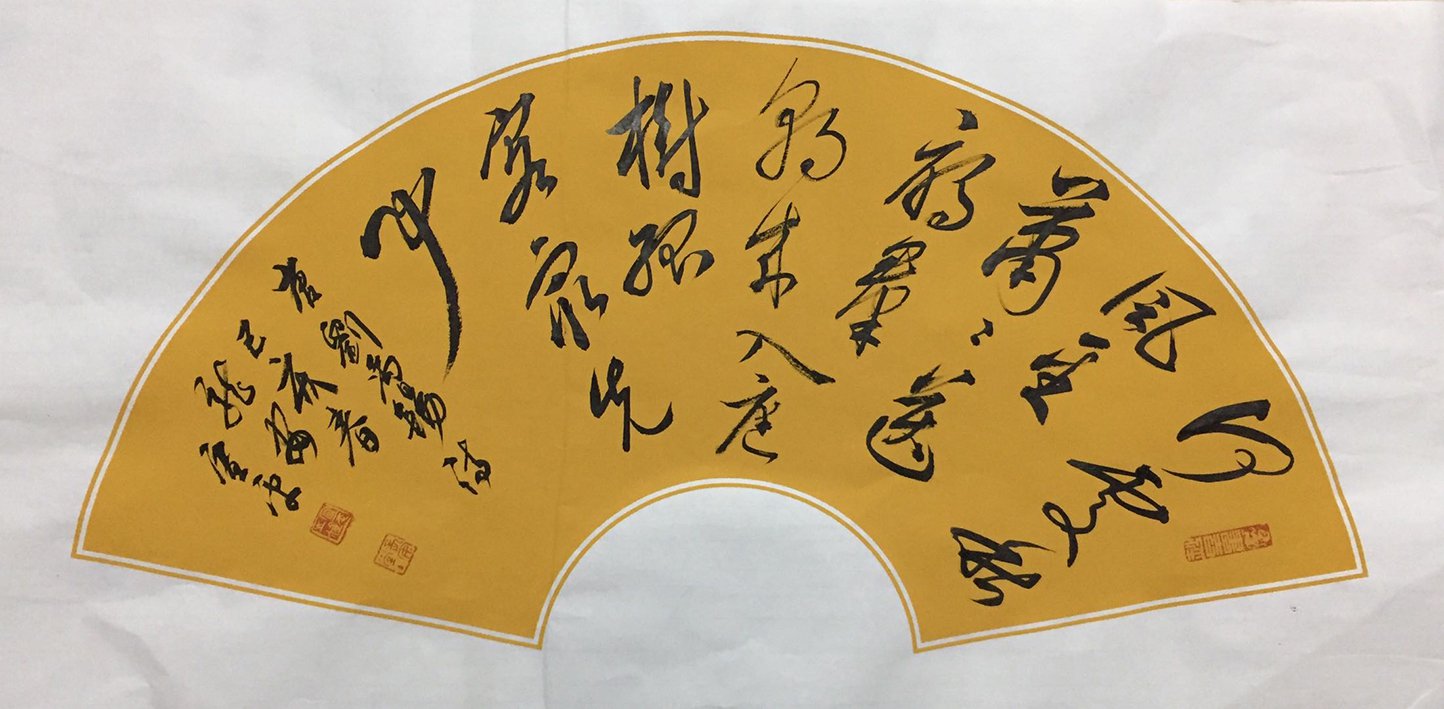 何處秋
風至
蕭〻送
雁羣
朝來入庭
樹孤
客最先
聞
唐劉禹錫詩
己亥春